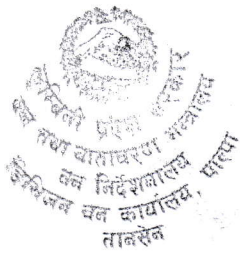 प्रदेश सरकार
तथा वातावरण मन्त्रालय
वन निर्देशनालय
डिभिजन वन कार्यालय, पाल्पा
तानसेन